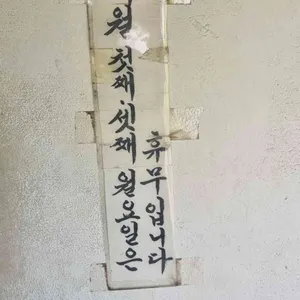 월 첫째·셋째 월요일은
휴무입니다